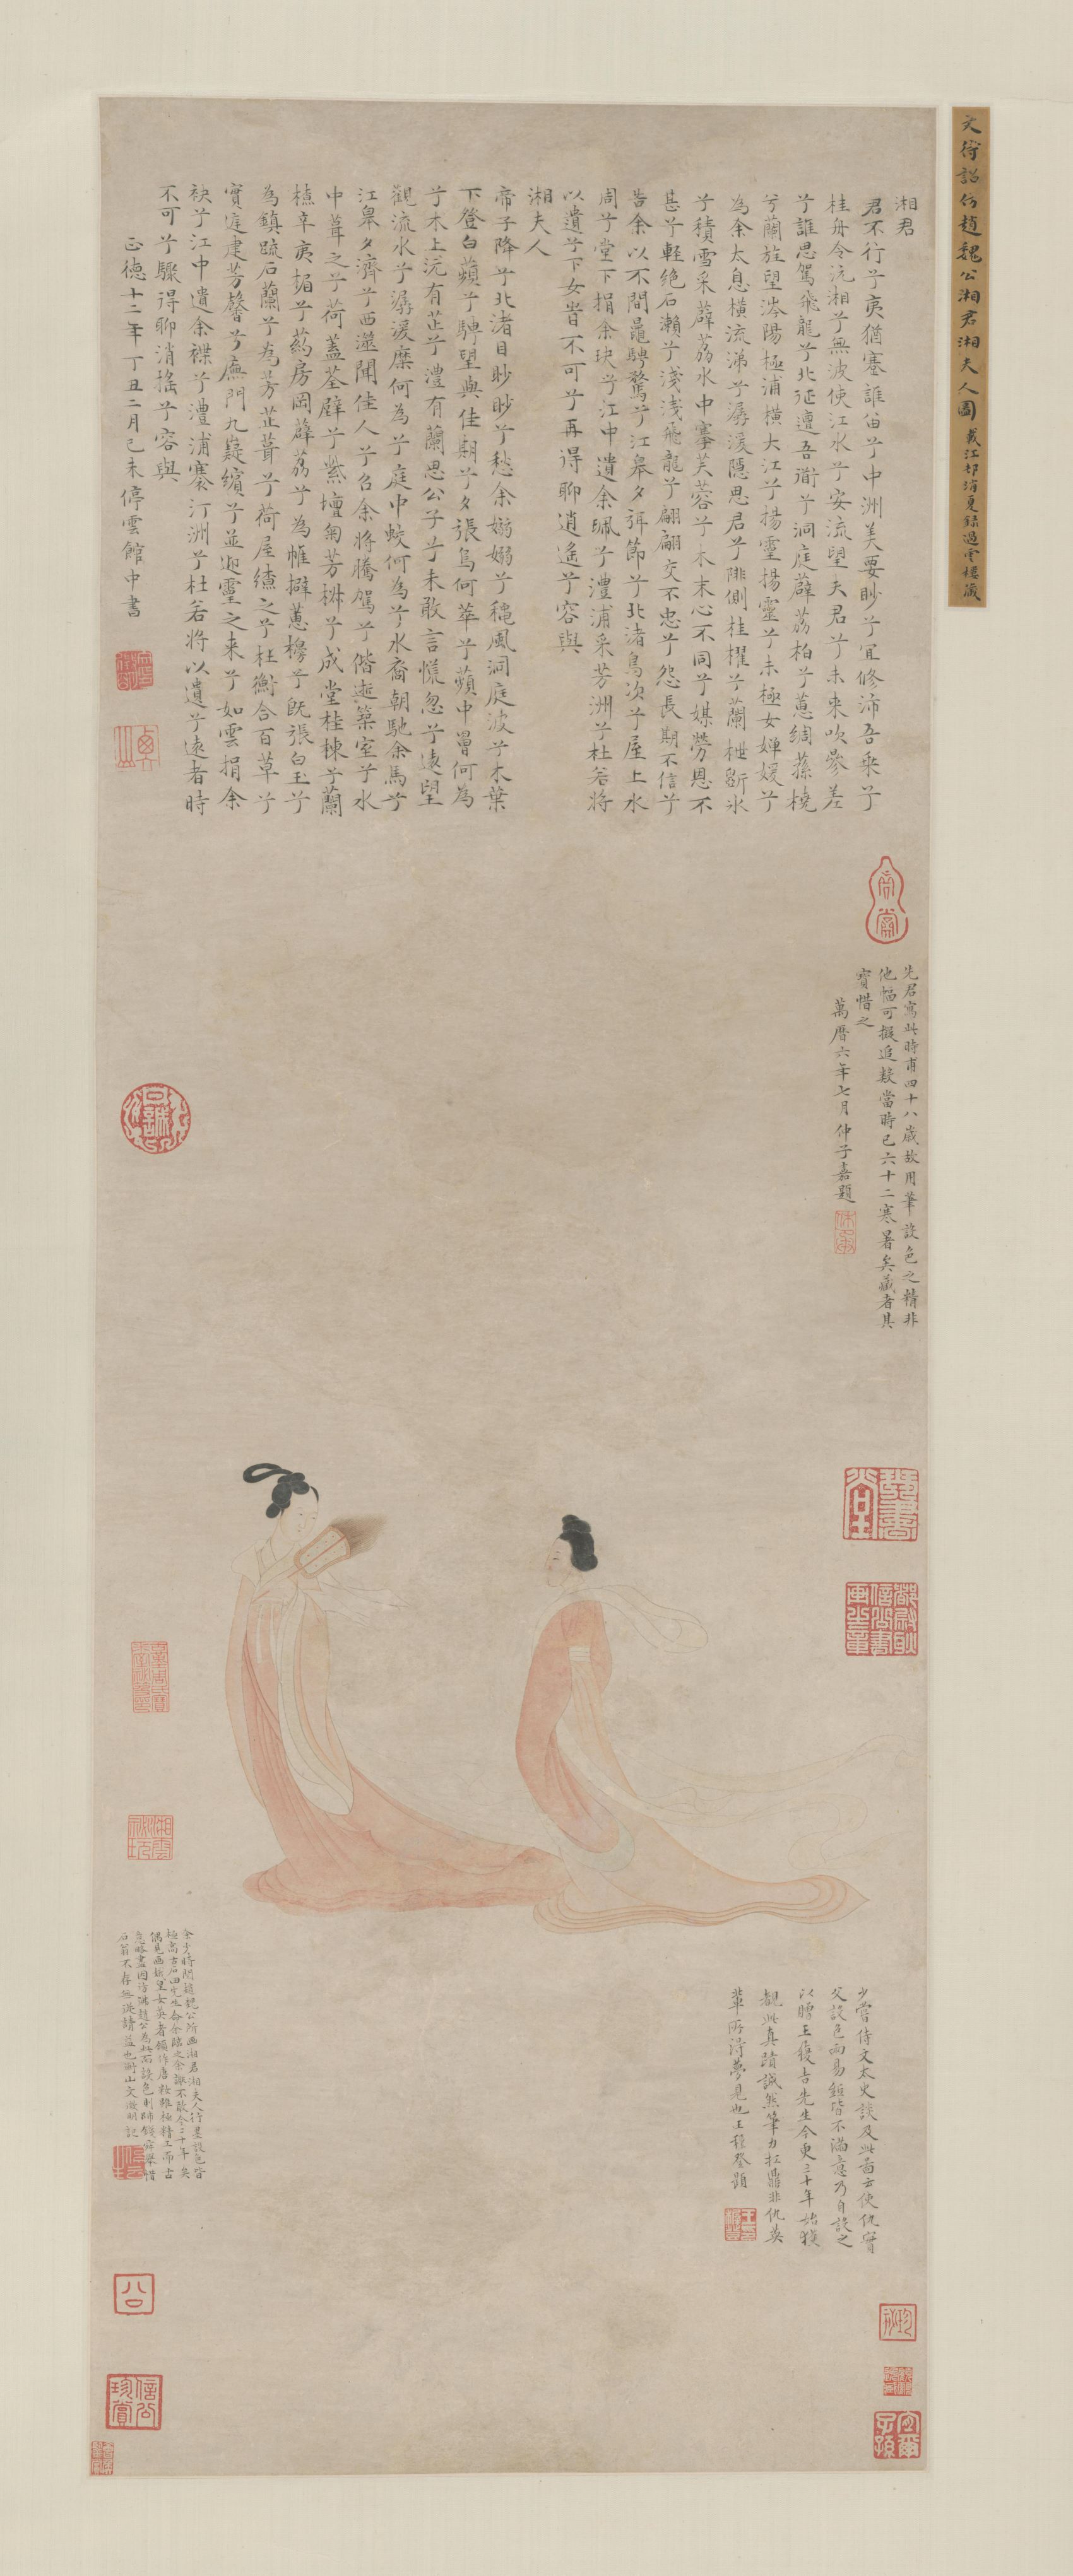 文待詔仿趙魏公湘君湘夫人圖 載江邨消夏錄過雲樓藏
湘君
君不行兮夷猶蹇誰留兮中洲美要眇兮宜修沛吾乘兮
桂舟令沅湘兮無波使江水兮安流望夫君兮未來吹參差
兮誰思駕飛龍兮北征邅吾道兮洞庭薜荔柏兮蕙綢蓀橈
兮蘭旌望涔陽極浦橫大江兮揚靈揚靈兮未極女嬋媛兮
為余太息橫流涕兮潺湲隱思君兮陫側桂櫂兮蘭枻斲冰
兮積雪采薜荔水中搴芙蓉兮木末心不同兮媒勞恩不
甚兮輕絕石瀨兮淺淺飛龍兮翩翩交不忠兮怨長期不信兮
告余以不閒鼂騁騖兮江皋夕弭節兮北渚鳥次兮屋上水
周兮堂下捐余玦兮江中遺余珮兮澧浦采芳洲兮杜若將
以遺兮下女旹不可兮再得聊逍遙兮容與
湘夫人
帝子降兮北渚目眇眇兮愁余嫋嫋兮穐風洞庭波兮木葉
下登白薠兮騁望與佳期兮夕張鳥何萃兮蘋中罾何為
兮木上沅有芷兮澧有蘭思公子兮未敢言慌忽兮遠望
觀流水兮潺湲麋何為兮庭中蛟何為兮水裔朝馳余馬兮
江皋夕濟兮西澨聞佳人兮召余將騰駕兮偕逝築室兮水
中葺之兮荷蓋荃壁兮紫壇匊芳椒兮成堂桂棟兮蘭
橑辛夷楣兮葯房罔薜荔兮為帷擗蕙櫋兮既張白玉兮
為鎮疏石蘭兮為芳芷葺兮荷屋繚之兮杜衡合百草兮
實庭建芳馨兮廡門九嶷繽兮並迎靈之來兮如雲捐余
袂兮江中遺余褋兮澧浦搴汀洲兮杜若將以遺兮遠者時
不可兮驟得聊消搖兮容與
正德十二年丁丑二月己未停雲館中書
先君寫此時甫四十八歲故用筆設色之精非
他幅可擬追數當時已六十二寒暑矣藏者其
寶惜之
萬曆六年七月仲子嘉題
少嘗侍文太史談及此啚云使仇實
父設色兩易紙皆不滿意乃自設之
以贈王履吉先生今更三十年始獲
覩此真蹟誠然筆力扛鼎非仇英
輩所得夢見也王穉登題
余少時閱趙魏公所画湘君湘夫人行墨設色皆
極高古石田先生命余臨之余謝不敢今二十年矣
偶見画娥皇女英者顧作唐妝雖極精工而古
意略盡因仿彿趙公為此而設色則師錢舜舉惜
石翁不存無從請益也衡山文徵明記